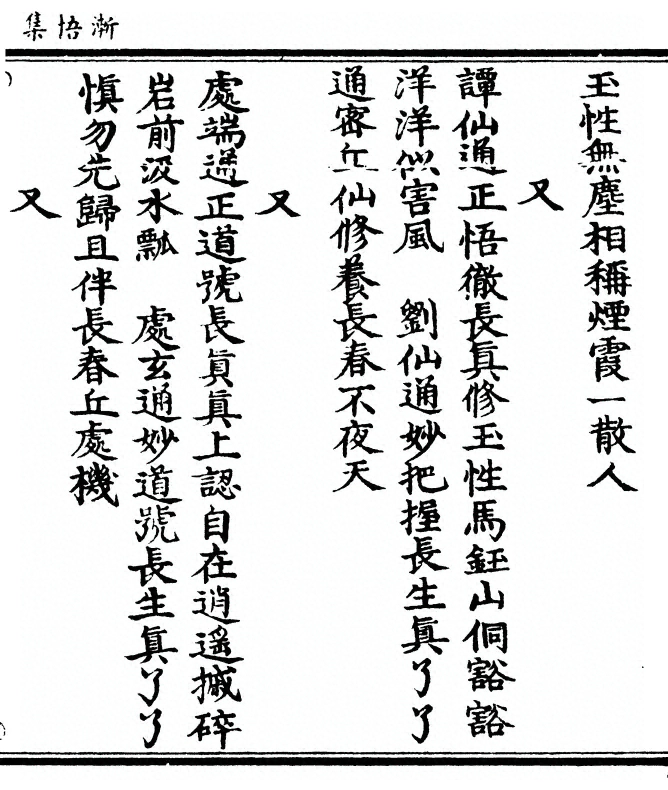 漸悟集
玉性無塵相稱煙霞一散人
又
譚仙通正悟徹長真修玉性馬鈺山侗豁豁
洋洋似害風　劉仙通妙把握長生真了了
通密丘仙修養長春不夜天
又
處端通正道號長真真上認自在逍遙摵碎
岩前汲水瓢　處玄通妙道號長生真了了
慎勿先歸且伴長春丘處機
又